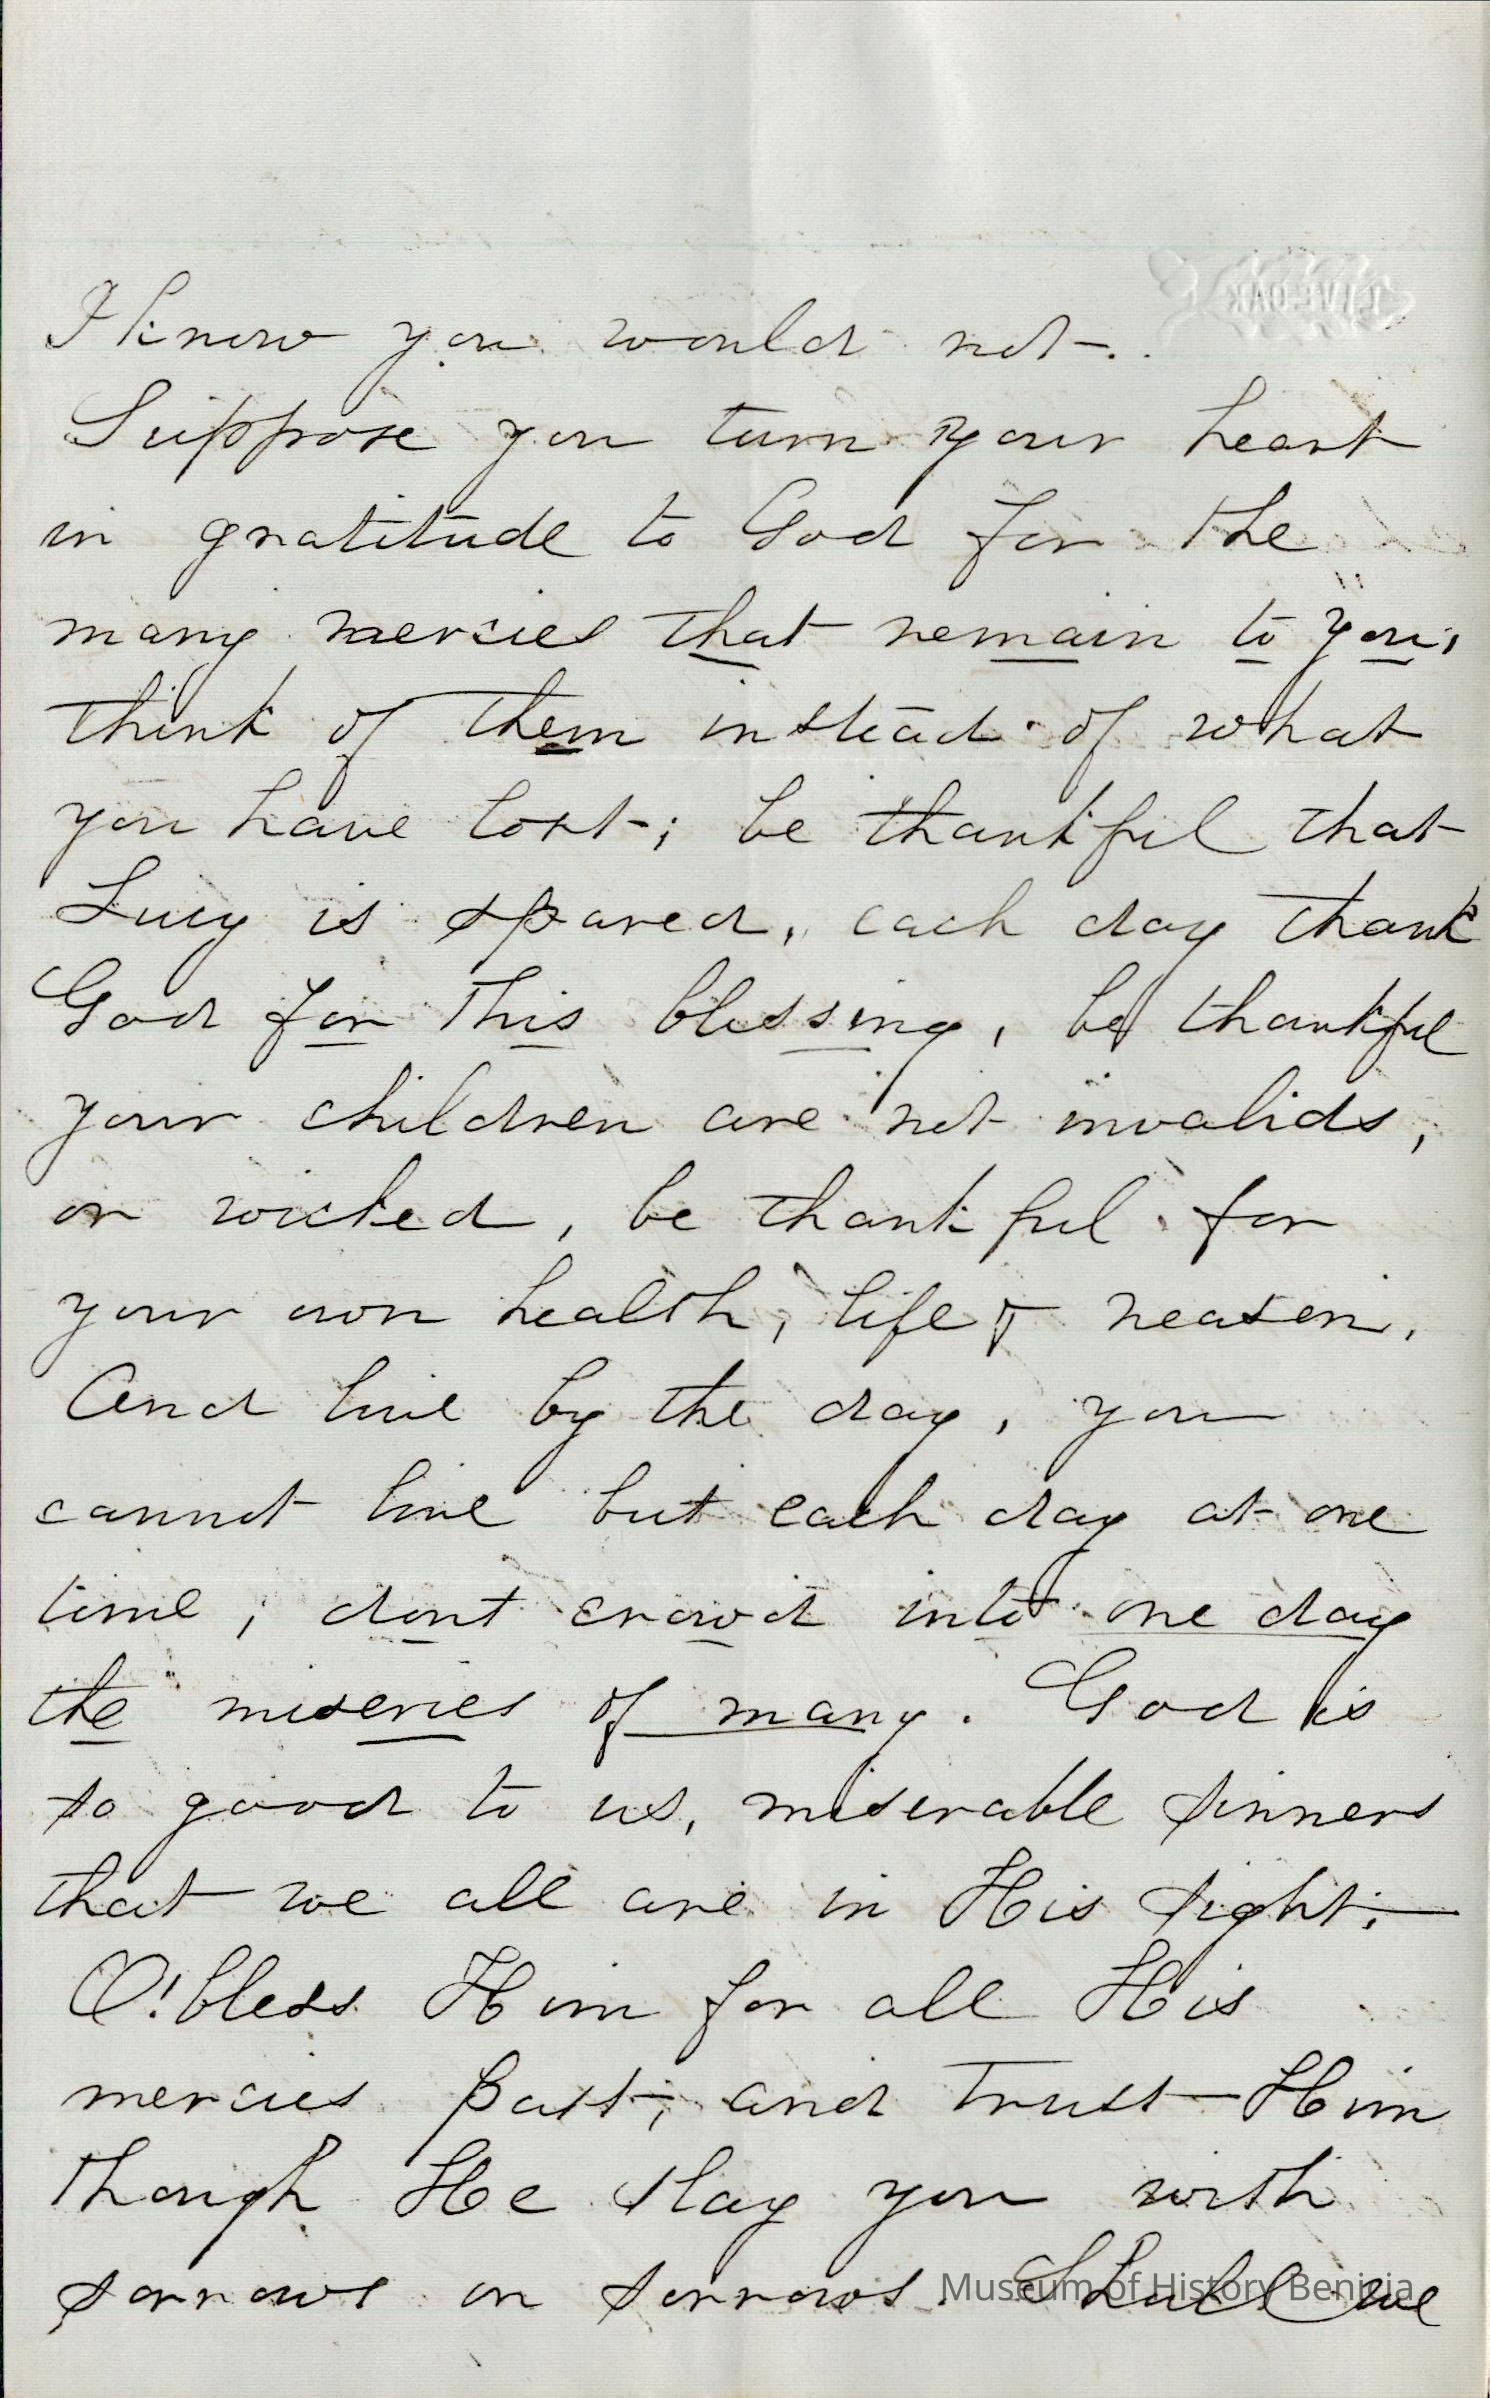 LIVE-OAK
I know you would not.
Suppose you turn your heart
in gratitude to God for the
many mercies that remain to you,
think of them instead of what
you have lost; be thankful that
Lucy is spared, each day thank
God for this blessing, be thankful
your children are not invalids,
or wicked, be thankful for
your own health, life & reason.
And live by the day, you
cannot live but each day at one
time, dont crowd into one day
the miseries of many. God is
so good to us, miserable sinners
that we all are in His sight;—
O! bless Him for all His
mercies past, and trust Him
though He slay you with
sorrows on sorrows. Shall we
Museum of History Benicia